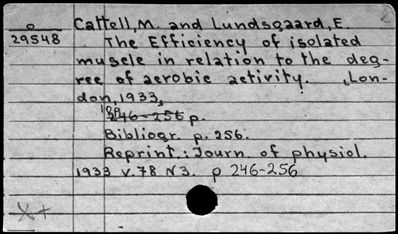 2
o Cattell, M. and Lundsgaard, E
29548 The Efficiency of isolated
muscle in relation to the deg-
ree of aerobic activity. Lon-
don, 1933,
246-256 p.
Bibliogr. p. 256.
Reprint.: Journ. of physiol.
1933 v. 78 N3. p 246-256
X+